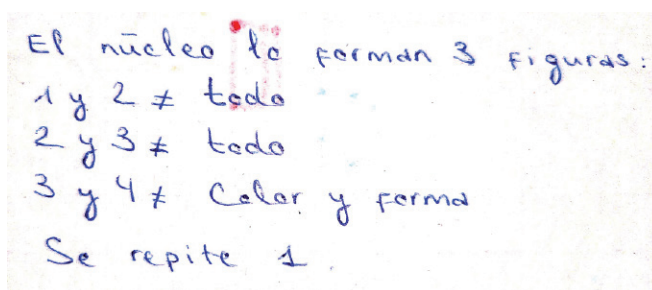 El núcleo lo forman 3 figuras:
1 y 2 ≠ todo
2 y 3 ≠ todo
3 y 4 ≠ Color y forma
Se repite 1